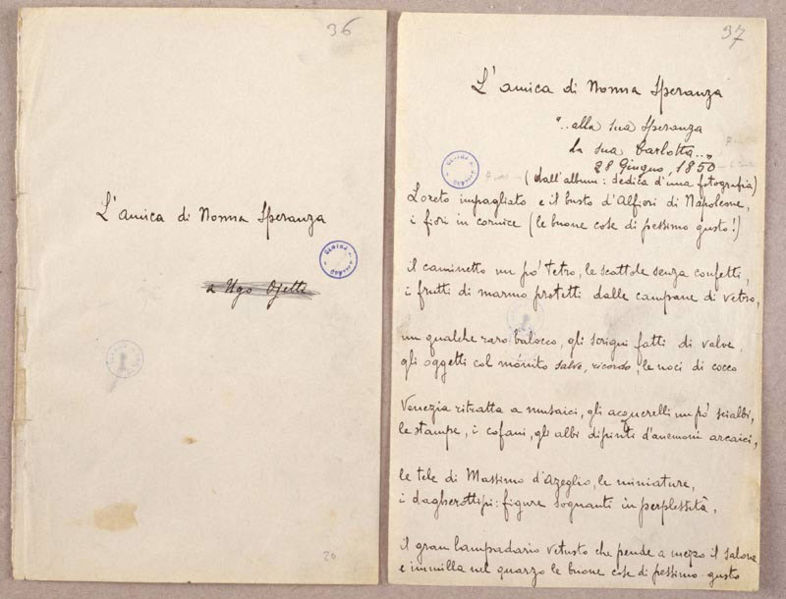 36
L'amica di Nonna Speranza
a Ugo Ojetti
20
37
L'amica di Nonna Speranza
"..alla sua Speranza
la sua Carlotta...„
28 Giugno, 1850
(dall'album: dedica d'una fotografia)
Loreto impagliato e il busto d'Alfieri di Napoleone,
i fiori in cornice (le buone cose di pessimo gusto!)
il caminetto un pó tetro, le scattole senza confetti,
i frutti di marmo protetti dalle campane di vetro,
un qualche raro balocco, gli scrigni fatti di valve,
gli oggetti col mónito salve, ricordo, le noci di cocco
Venezia ritratta a musaici, gli acquerelli un pó scialbi,
le stampe, i cofani, gli albi dipinti d'anemoni arcaici,
le tele di Massimo d'Azeglio, le miniature,
i dagherottipi: figure sognanti in perplessità,
il gran lampadario vetusto che pende a mezzo il salone
e immilla nel quarzo le buone cose di pessimo gusto